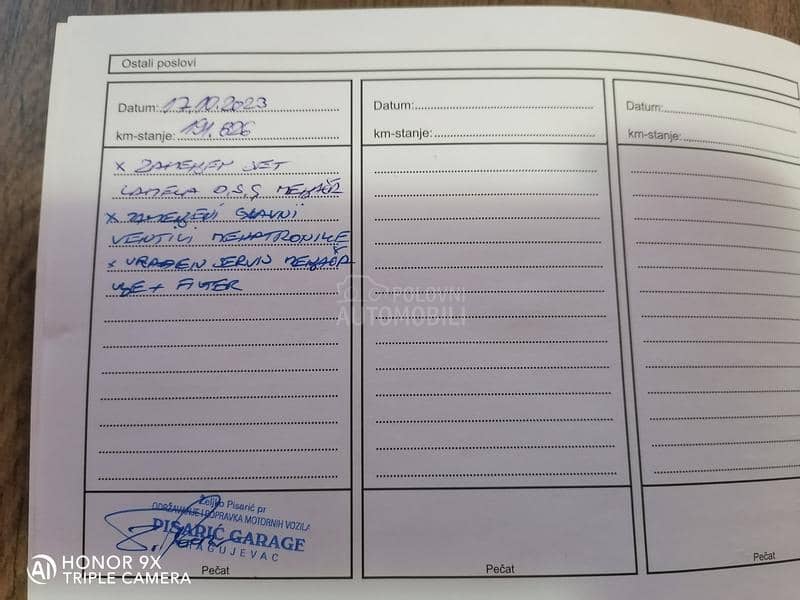 Ostali poslovi
Datum: 17.10.2023
km-stanje: 191.626
x ZAMENJEN SET
LAMELA D.S.G MENJAČA
x ZAMENJENI GLAVNI
VENTILI MEHATRONIKE
x URAĐEN SERVIS MENJAČA
ULJE + FILTER
Željko Pisarić pr
ODRŽAVANJE I POPRAVKA MOTORNIH VOZILA
PISARIĆ GARAGE
KRAGUJEVAC
Pečat
Datum:
km-stanje:
Pečat
Datum:
km-stanje:
Pečat
POLOVNI
AUTOMOBILI
HONOR 9X
TRIPLE CAMERA